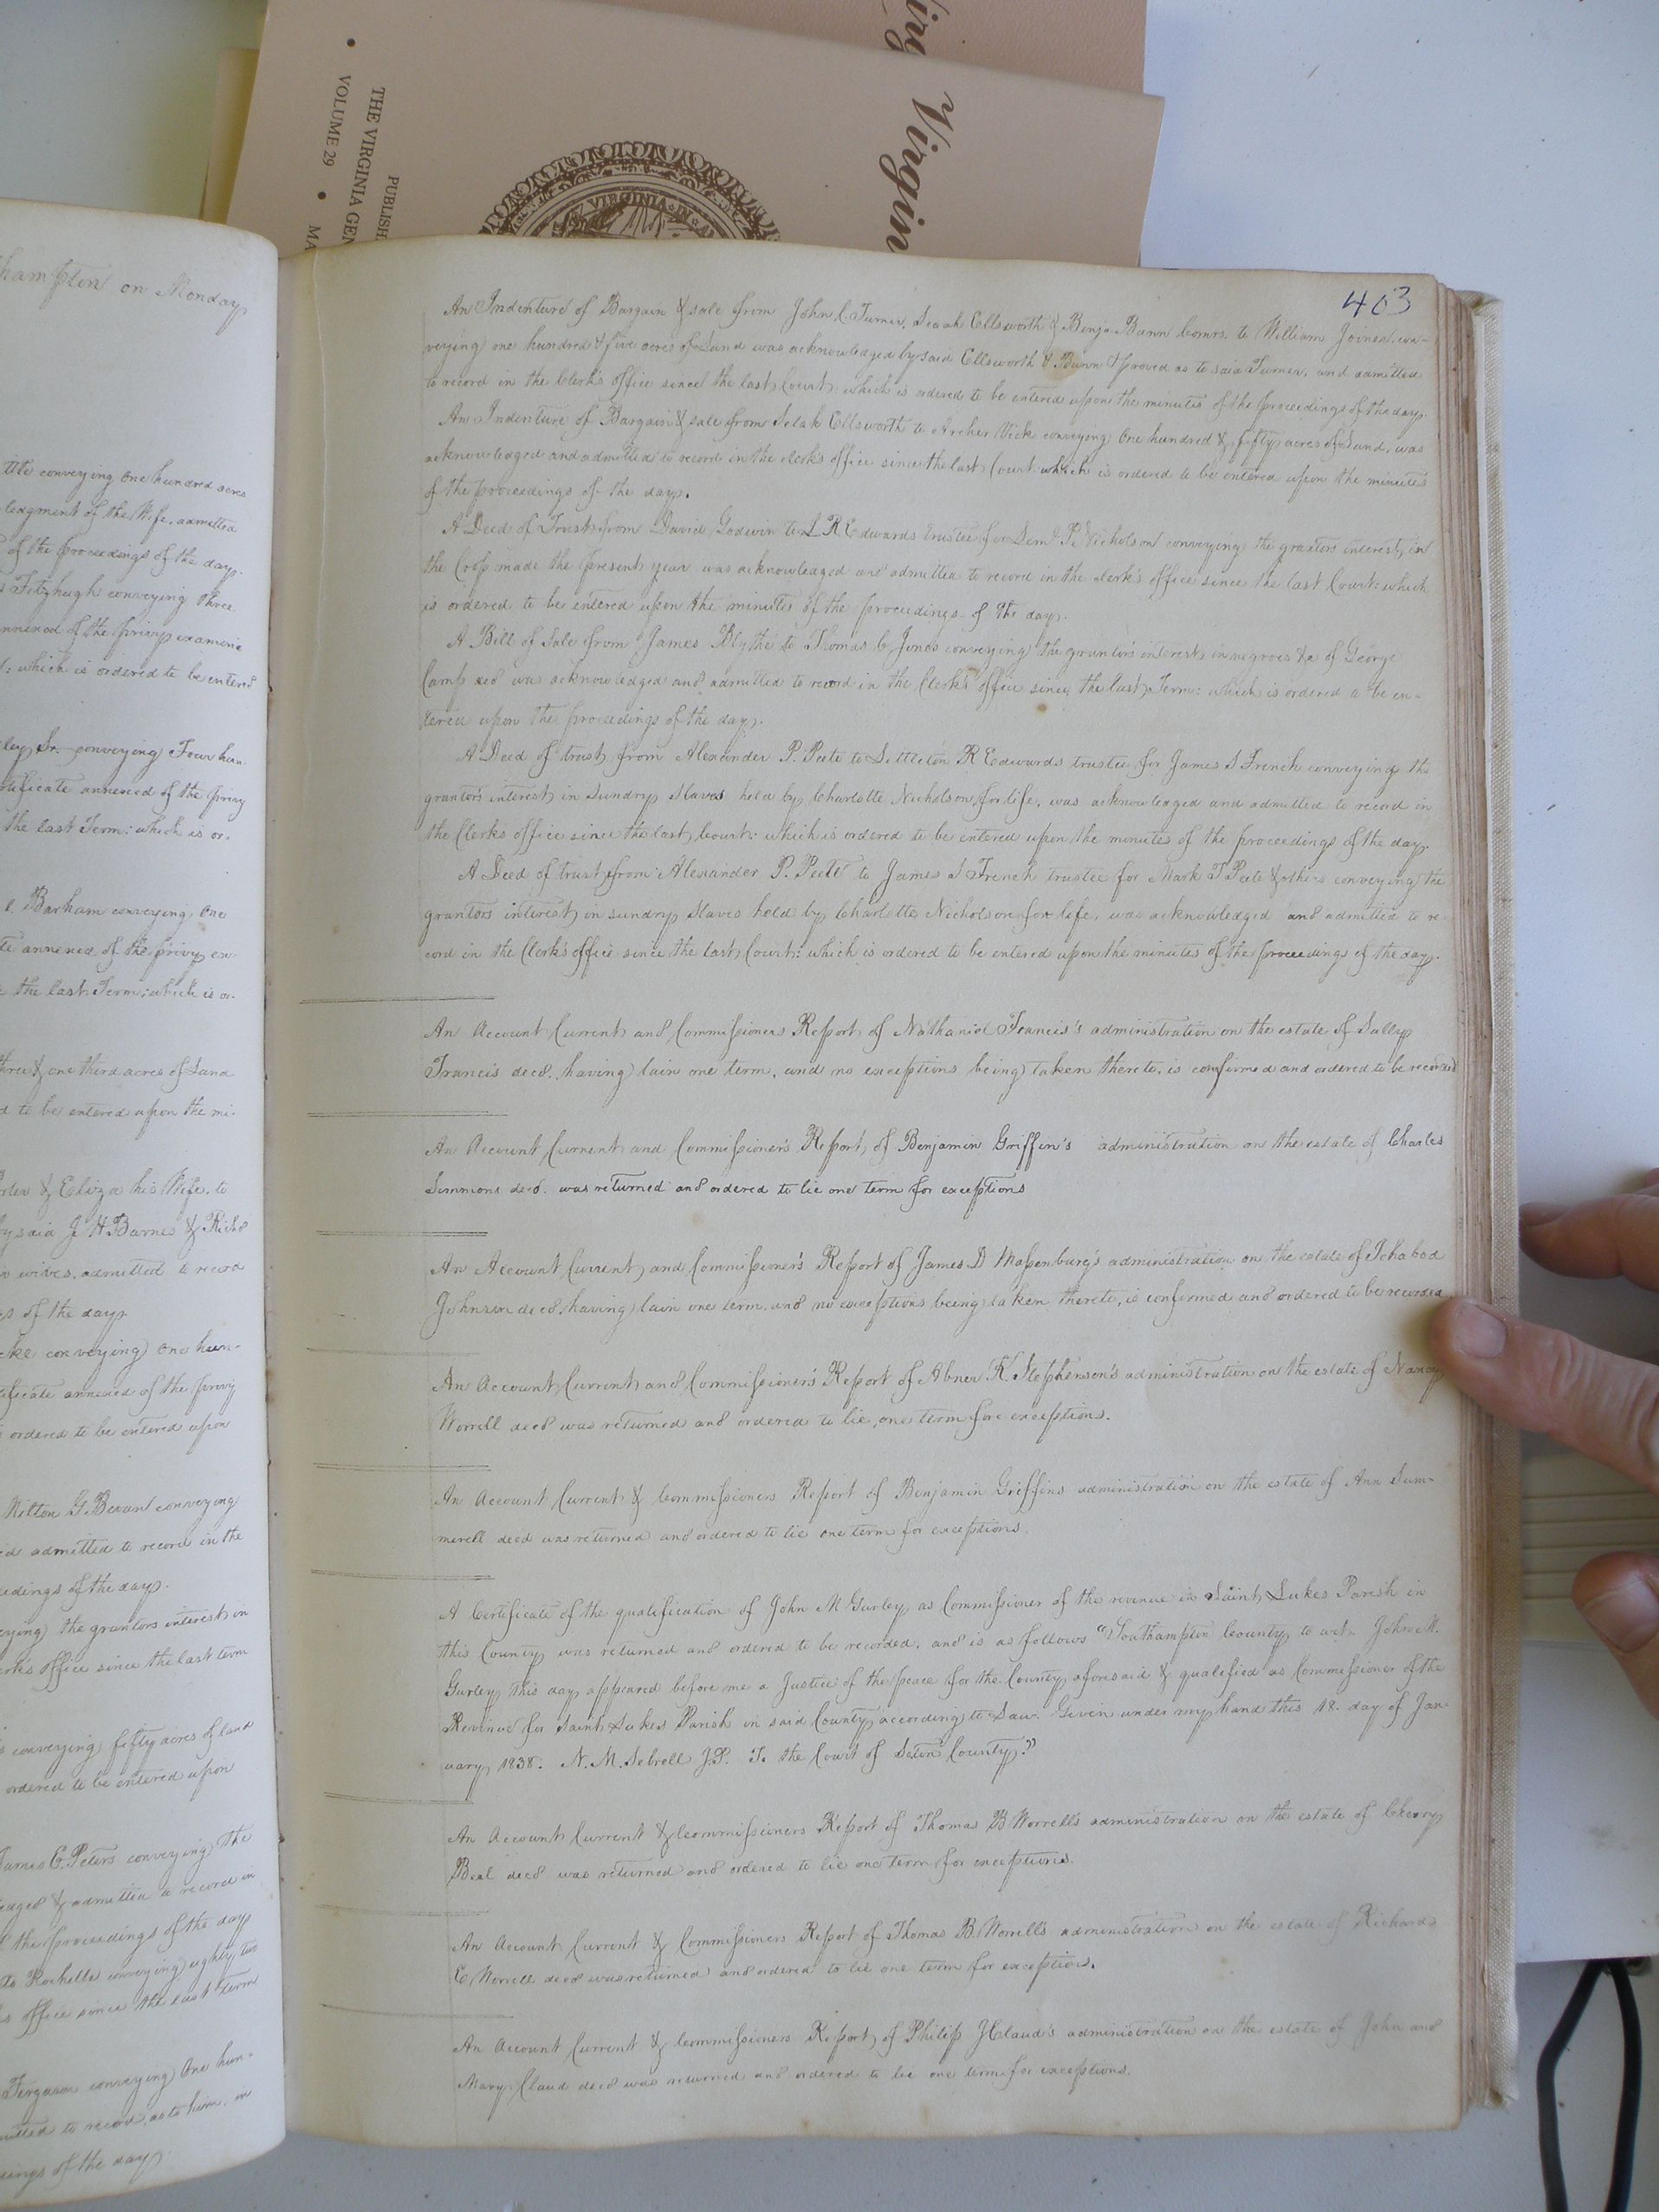 Virgin
PUBLISH
THE VIRGINIA GEN
VOLUME 29 • MA
VIRGINIA IN
hampton on Monday
conveying one hundred acres
ledgment of the Wife, admitted
of the proceedings of the day.
Fitzhugh conveying three
annexed of the privy examin
: which is ordered to be entered
ley Sr. conveying Four hun-
tificate annexed of the privy
the last Term: which is or-
Barham conveying One
annexed of the privy ex-
the last Term; which is or-
three & one third acres of Land
d to be entered upon the mi-
& Eliza his Wife, to
said J H Barnes & Richd
wives, admitted to record
of the day
conveying One hun-
tificate annexed of the privy
ordered to be entered upon
Milton G. Bevan conveying
d admitted to record in the
eedings of the day.
eying the grantors interest in
erk's office since the last term
conveying fifty acres of land
ordered to be entered upon
James E. Peters conveying the
edged & admitted to record in
the proceedings of the day
to Rochelle conveying eighty two
office since the last term
Ferguson conveying One hun-
mitted to record, as to him, in
dings of the day.
403
An Indenture of Bargain & sale from John C. Turner, Selah Ellsworth & Benja Bunn Comrs. to William Joiner con-
veying one hundred & five acres of Land was acknowledged by said Ellsworth & Bunn & proved as to said Turner, and admitted
to record in the Clerk's office since the last Court: which is ordered to be entered upon the minutes of the proceedings of the day.
An Indenture of Bargain & sale from Selah Ellsworth to Archer Vick conveying One hundred & fifty acres of Land, was
acknowledged and admitted to record in the clerk's office since the last Court: which is ordered to be entered upon the minutes
of the proceedings of the day.
A Deed of Trust from David Godwin to L R Edwards trustee for P. Nicholson conveying the grantors interest in
the Crop made the present year was acknowledged and admitted to record in the clerk's office since the last Court: which
is ordered to be entered upon the minutes of the proceedings of the day.
A Bill of Sale from James Blythe to Thomas C. Jones conveying the grantors interest in negroes &c of George
Camp decd was acknowledged and admitted to record in the Clerk's office since the last Term: which is ordered to be en-
tered upon the proceedings of the day.
A Deed of trust from Alexander P. Peete to Littleton R Edwards trustee for James S French conveying the
grantor's interest in sundry Slaves held by Charlotte Nicholson for life, was acknowledged and admitted to record in
the Clerk's office since the last Court: which is ordered to be entered upon the minutes of the proceedings of the day.
A Deed of trust from Alexander P. Peete to James S French trustee for Mark T Peete & others conveying the
grantors interest in sundry Slaves held by Charlotte Nicholson for life, was acknowledged and admitted to re-
cord in the Clerk's office since the last Court: which is ordered to be entered upon the minutes of the proceedings of the day.
An Account Current and Commissioners Report of Nathaniel Francis's administration on the estate of Sally
Francis decd. having lain one term, and no exceptions being taken thereto, is confirmed and ordered to be recorded
An Account Current and Commissioner's Report, of Benjamin Griffin's administration on the estate of Charles
Simmons decd. was returned and ordered to lie one term for exceptions
An Account Current and Commissioner's Report of James D Massenburg's administration on the estate of Ichabod
Johnson decd. having lain one term, and no exceptions being taken thereto, is confirmed and ordered to be recorded
An Account Current and Commissioner's Report of Abner K. Stephenson's administration on the estate of Nancy
Worrell decd was returned and ordered to lie one term for exceptions.
An Account Current & Commissioners Report of Benjamin Griffins administration on the estate of Ann Sum-
merell decd was returned and ordered to lie one term for exceptions.
A Certificate of the qualification of John M Gurley as Commissioner of the revenue in Saint Lukes Parish in
this County was returned and ordered to be recorded, and is as follows "Southampton County to wit: John M.
Gurley this day appeared before me a Justice of the peace for the County aforesaid & qualified as Commissioner of the
Revenue for Saint Lukes Parish in said County according to Law. Given under my hand this 18. day of Jan-
uary 1838. N. M. Sebrell J.P. To the Court of Soton County."
An Account Current & Commissioners Report of Thomas B Worrell's administration on the estate of Cherry
Beal decd was returned and ordered to lie one term for exceptions.
An Account Current & Commissioners Report of Thomas B. Worrell's administration on the estate of Richard
E Worrell decd was returned and ordered to lie one term for exceptions.
An Account Current & Commissioners Report of Philip J Claud's administration on the estate of John and
Mary Claud decd was returned and ordered to lie one term for exceptions.